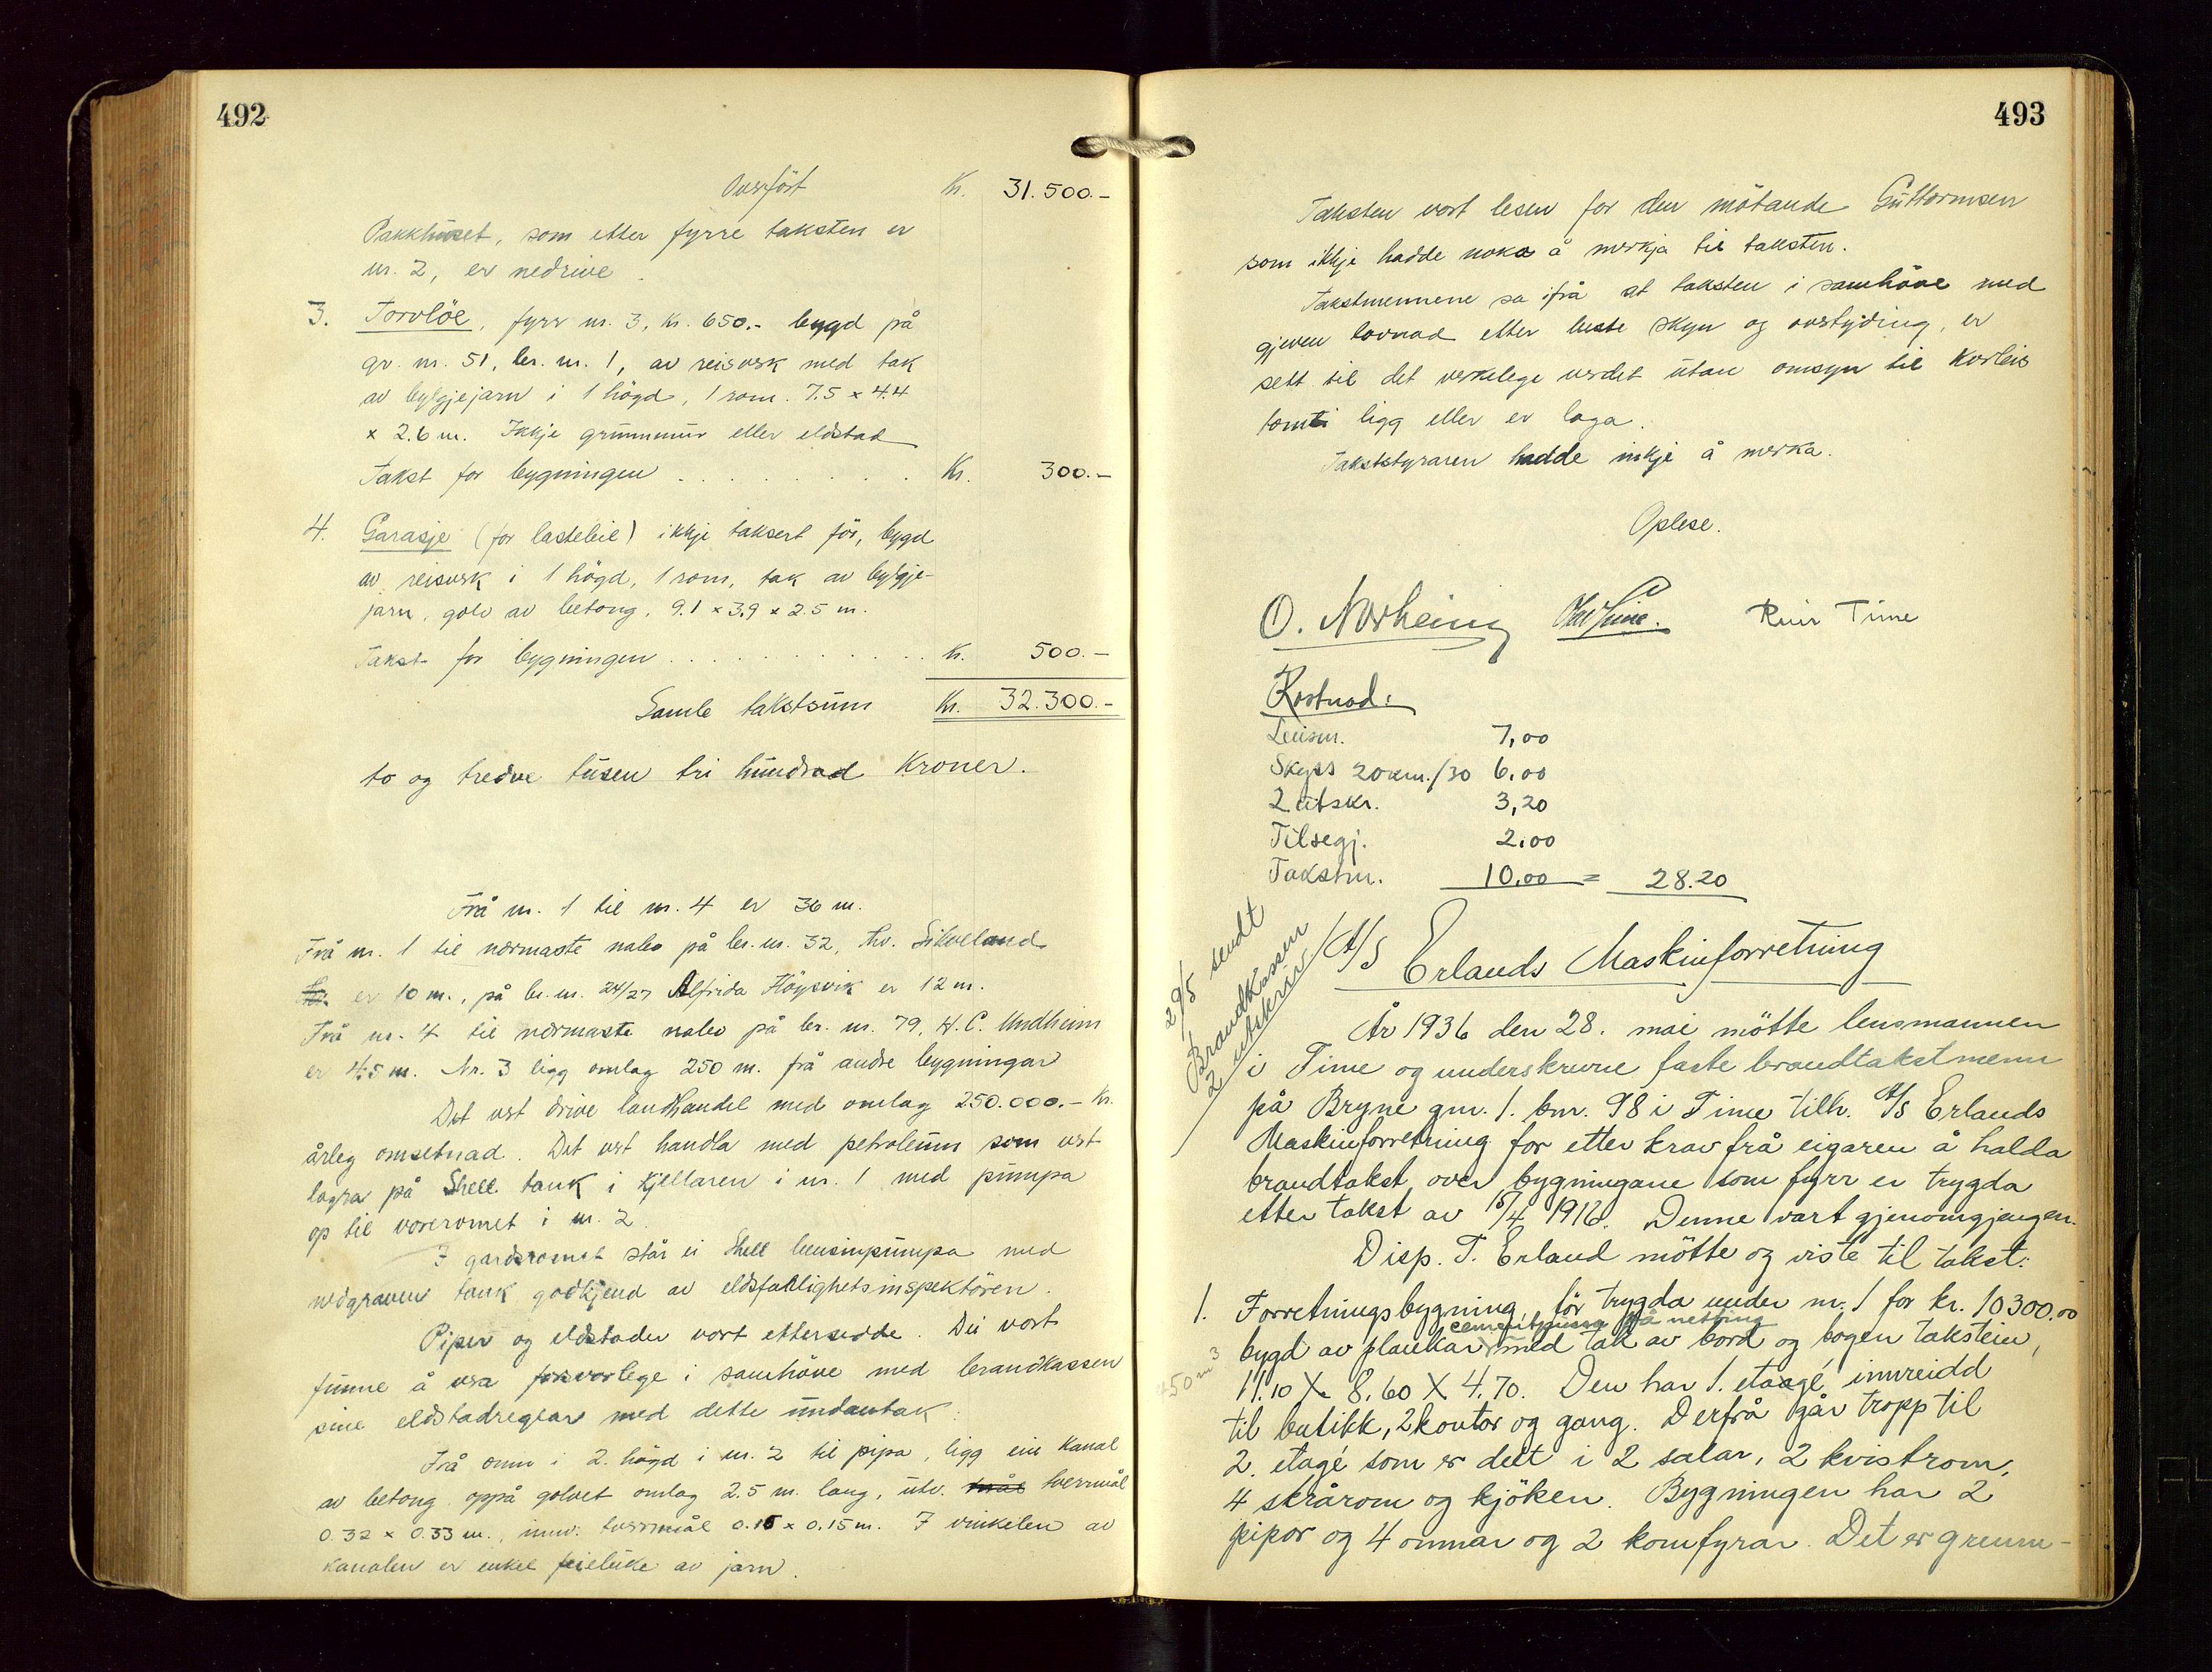 492
Overfört Kr. 31.500.-
Pakkhuset, som etter fyrre taksten er
nr. 2, er nedrive.
3. Torvlöe, fyrr nr. 3, kr. 650.- bygd på
gr. nr. 51, br. nr. 1, av reisverk med tak
av bylgjejarn i 1 högd, 1 rom. 7.5 x 4.4
x 2.6 m. Ikkje grunnmur eller eldstad
Takst for bygningen . . . . . . . . . Kr. 300.-
4. Garasje (for lastebil) ikkje taksert för, bygd
av reisverk i 1 högd, 1 rom, tak av bylgje-
jarn, golv av betong. 9.1 x 3.9 x 2.5 m.
Takst for bygningen . . . . . . . . . . . kr. 500.-
Samle takstsum Kr. 32.300.-
to og tredve tusen tri hundrad Kroner.
Frå nr. 1 til nr. 4 er 36 m.
Frå nr. 1 til nærmaste nabo på br. nr. 32, Thv. Sikveland
er 10 m., på br. nr. 24/27 Alfrida Höysvik er 12 m.
Frå nr. 4 til nærmaste nabo på br. nr. 79, H. C. Undheim
er 4.5 m. Nr. 3 ligg omlag 250 m. frå andre bygningar
Det vert drive landhandel med omlag 250.000.- Kr.
årleg omsetnad. Det vert handla med petroleum som vert
lagra på Shell tank i kjellaren i nr. 1 med pumpa
op til vareromet i nr. 2.
I gardsromet står ei Shell bensinpumpa med
nedgraven tank godkjend av eldsfarlighetsinspektören.
Piper og eldstader vart ettersedde. Dei vart
funne å vera forsvarlege i samhöve med brandkassen
sine eldstadreglar med dette undantak.
Frå omn i 2. högd i nr. 2 til pipa, ligg ein kanal
av betong oppå golvet omlag 2.5 m. lang, utv. mål tverrmål
0.32 x 0.33 m., innv. tverrmål 0.15 x 0.15 m. I vinkelen av
kanalen er enkel feieluke av jarn.
493
Taksten vart lesen for den mötande Guttormsen
som ikkje hadde noko å merkja til taksten.
Takstmennene sa ifrå at taksten i samhöve med
gjeven lovnad etter beste skyn og overtyding, er
sett til det verkelege verdet utan omsyn til korleis
tomti ligg eller er laga.
Takststyraren hadde inkje å merka.
Oplese.
O. Norheim Olav Time. Reier Time
Kostnad:
Lensm. 7,00
Skyss 20 km./30 6.00
2 utskr. 3,20
Tilsegj. 2.00
Takstm. 10.00 = 28.20
29/5 sendt
Brandkassen
2 utskrir
A/S Erlands Maskinforretning
År 1936 den 28. mai mötte lensmannen
i Time og underskrevne faste brandtakstmenn
på Bryne gnr. 1. bnr. 98 i Time tilh. A/S Erlands
Maskinforretning for etter krav frå eigaren å halda
brandtakst over bygningane som fyrr er trygda
etter takst av /4 1916. Denne vart gjenomgjengen.
Disp. T. Erland mötte og viste til takst:
1. Forretningsbygning, för trygda under nr. 1 for kr. 10300.00
cementpussa på netting
bygd av plankar, med tak av bord og bogen takstein,
450 m³
11.10 X 8.60 X 4.70. Den har 1. etaagé innreidd
til butikk, 2 kontor og gang. Derfrå går tropp til
2. etagé som er delt i 2 salar, 2 kvistrom,
4 skrårom og kjöken. Bygningen har 2
pipor og 4 omnar og 2 komfyrar. Det er grunn-